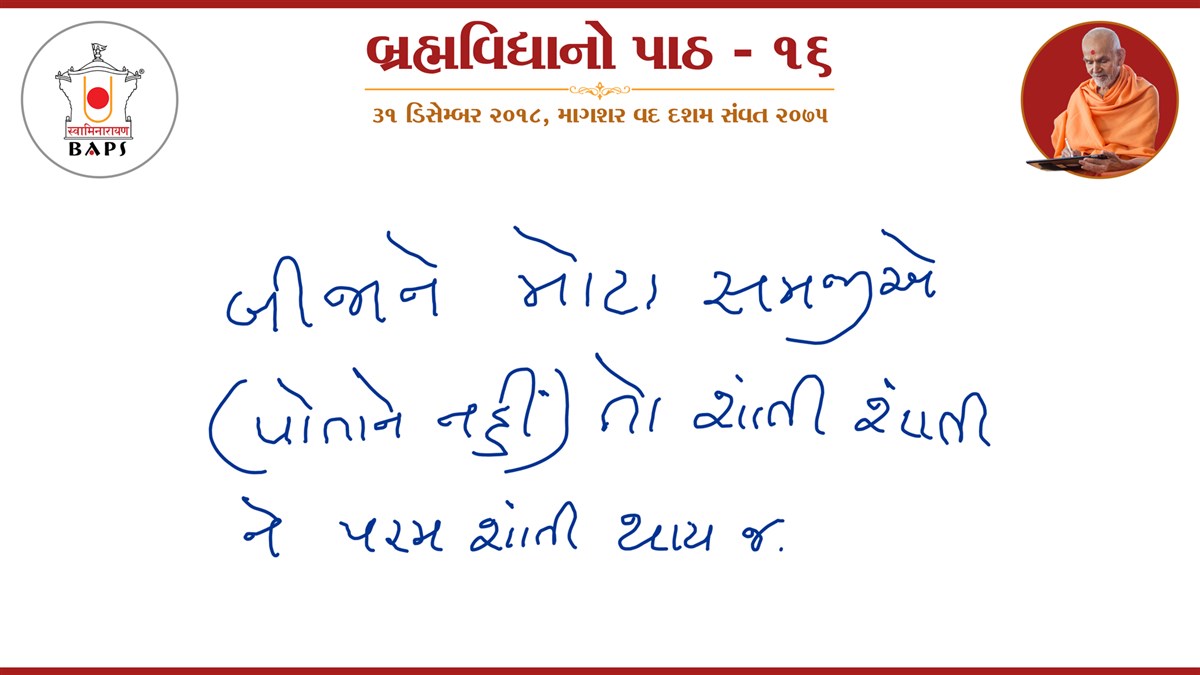 બ્રહ્મવિદ્યાનો પાઠ - ૧૬
૩૧ ડિસેમ્બર ૨૦૧૮, માગશર વદ દશમ સંવત ૨૦૭૫
स्वामिनारायण
BAPS
બીજાને મોટા સમજીએ
(પોતાને નહીં) તો શાંતી
ને પરમ શાંતી થાય જ.